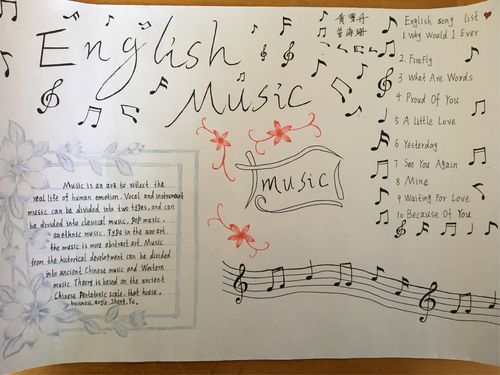 English
Music
黄
English song list
1. Why Would I Ever
2. Firefly
3 What Are Words
4 Proud Of You
5 A Little Love
6 Yesterday
7 See You Again
8 Mine
9 Waiting For Love
10 Because Of You
music
Music is an art to reflect the
real life of human emotion. Vocal and instrument
music can be divided into two types, and can
be divided into classical music, pop music,
ethnic music. Type in the an art.
the music is more abstract art. Music
from the historical development can be divided
into ancient Chinese music and Western
music. Theory is based on the ancient
Chinese Pentatonic scale, that house,
business, angle, Zheng, Yu.